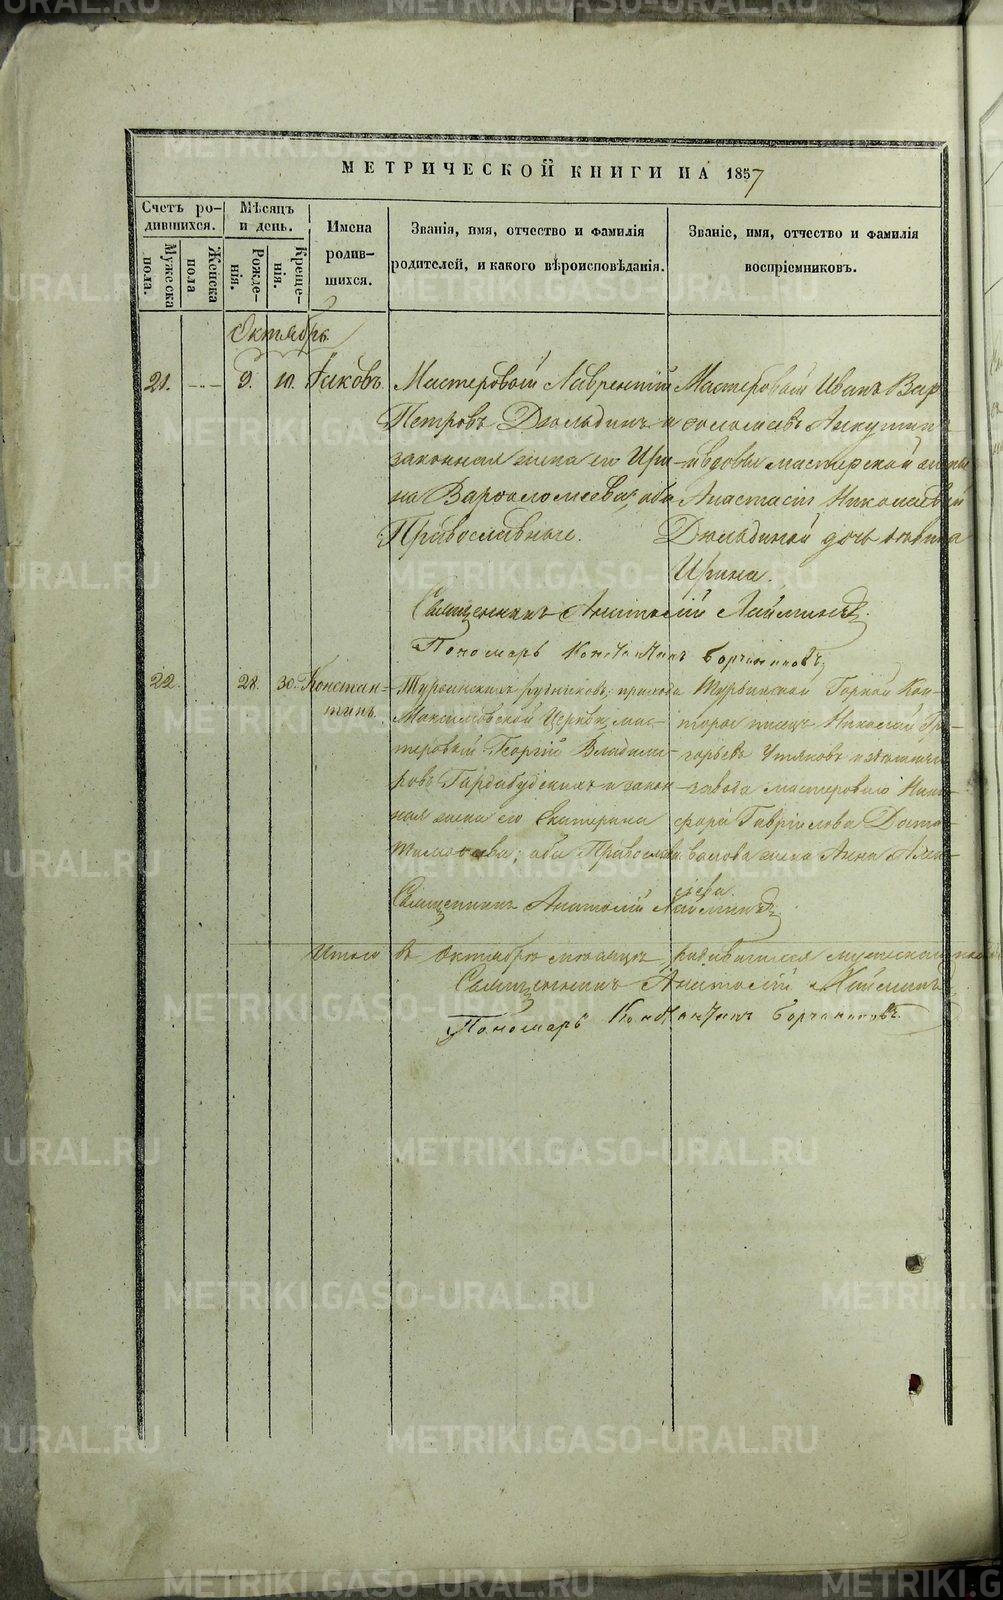 МЕТРИЧЕСКОЙ КНИГИ НА 1857
Счетъ ро-
дившихся.
Мужеска
пола.
Женска
пола
Мѣсяцъ
и день.
Рожде-
нія.
Креще-
нія.
Имена
родив-
шихся.
Званія, имя, отчество и фамилія
родителей, и какого вѣроисповѣданія.
Званіе, имя, отчество и фамилія
воспріемниковъ.
Октябрь.
21. 9. 10. Іаковъ.
Мастеровой Лаврентій
Петровъ Дюльдинъ и
законная жена его Ири-
на Варѳоломеева, оба
Православные.
Мастеровой Иванъ Вар
ѳоломеевъ Анкушинъ
и вдовы мастерской жены
Анастасіи Николаевой
Дюльдиной дочь девица
Ирина.
Священникъ Анатолій
Пономарь Константинъ
22. 28. 30. Констан-
тинъ.
Турьинскихъ рудниковъ, прихода
Максимовской Церкви, мас-
теровой Георгій Владими-
ровъ и закон-
ная жена его Екатерина
оба Православн.
Турьинской Горной Кон-
торы писецъ Николай Гри-
горьевъ
завода мастероваго Ники-
фора Гаврилова
жена Анна Алек-
сѣева.
Священникъ Анатолій
Итого въ Октябрѣ месяцѣ родившихся мужескаго пола
Священникъ Анатолій
Пономарь Константинъ
METRIKI.GASO-URAL.RU